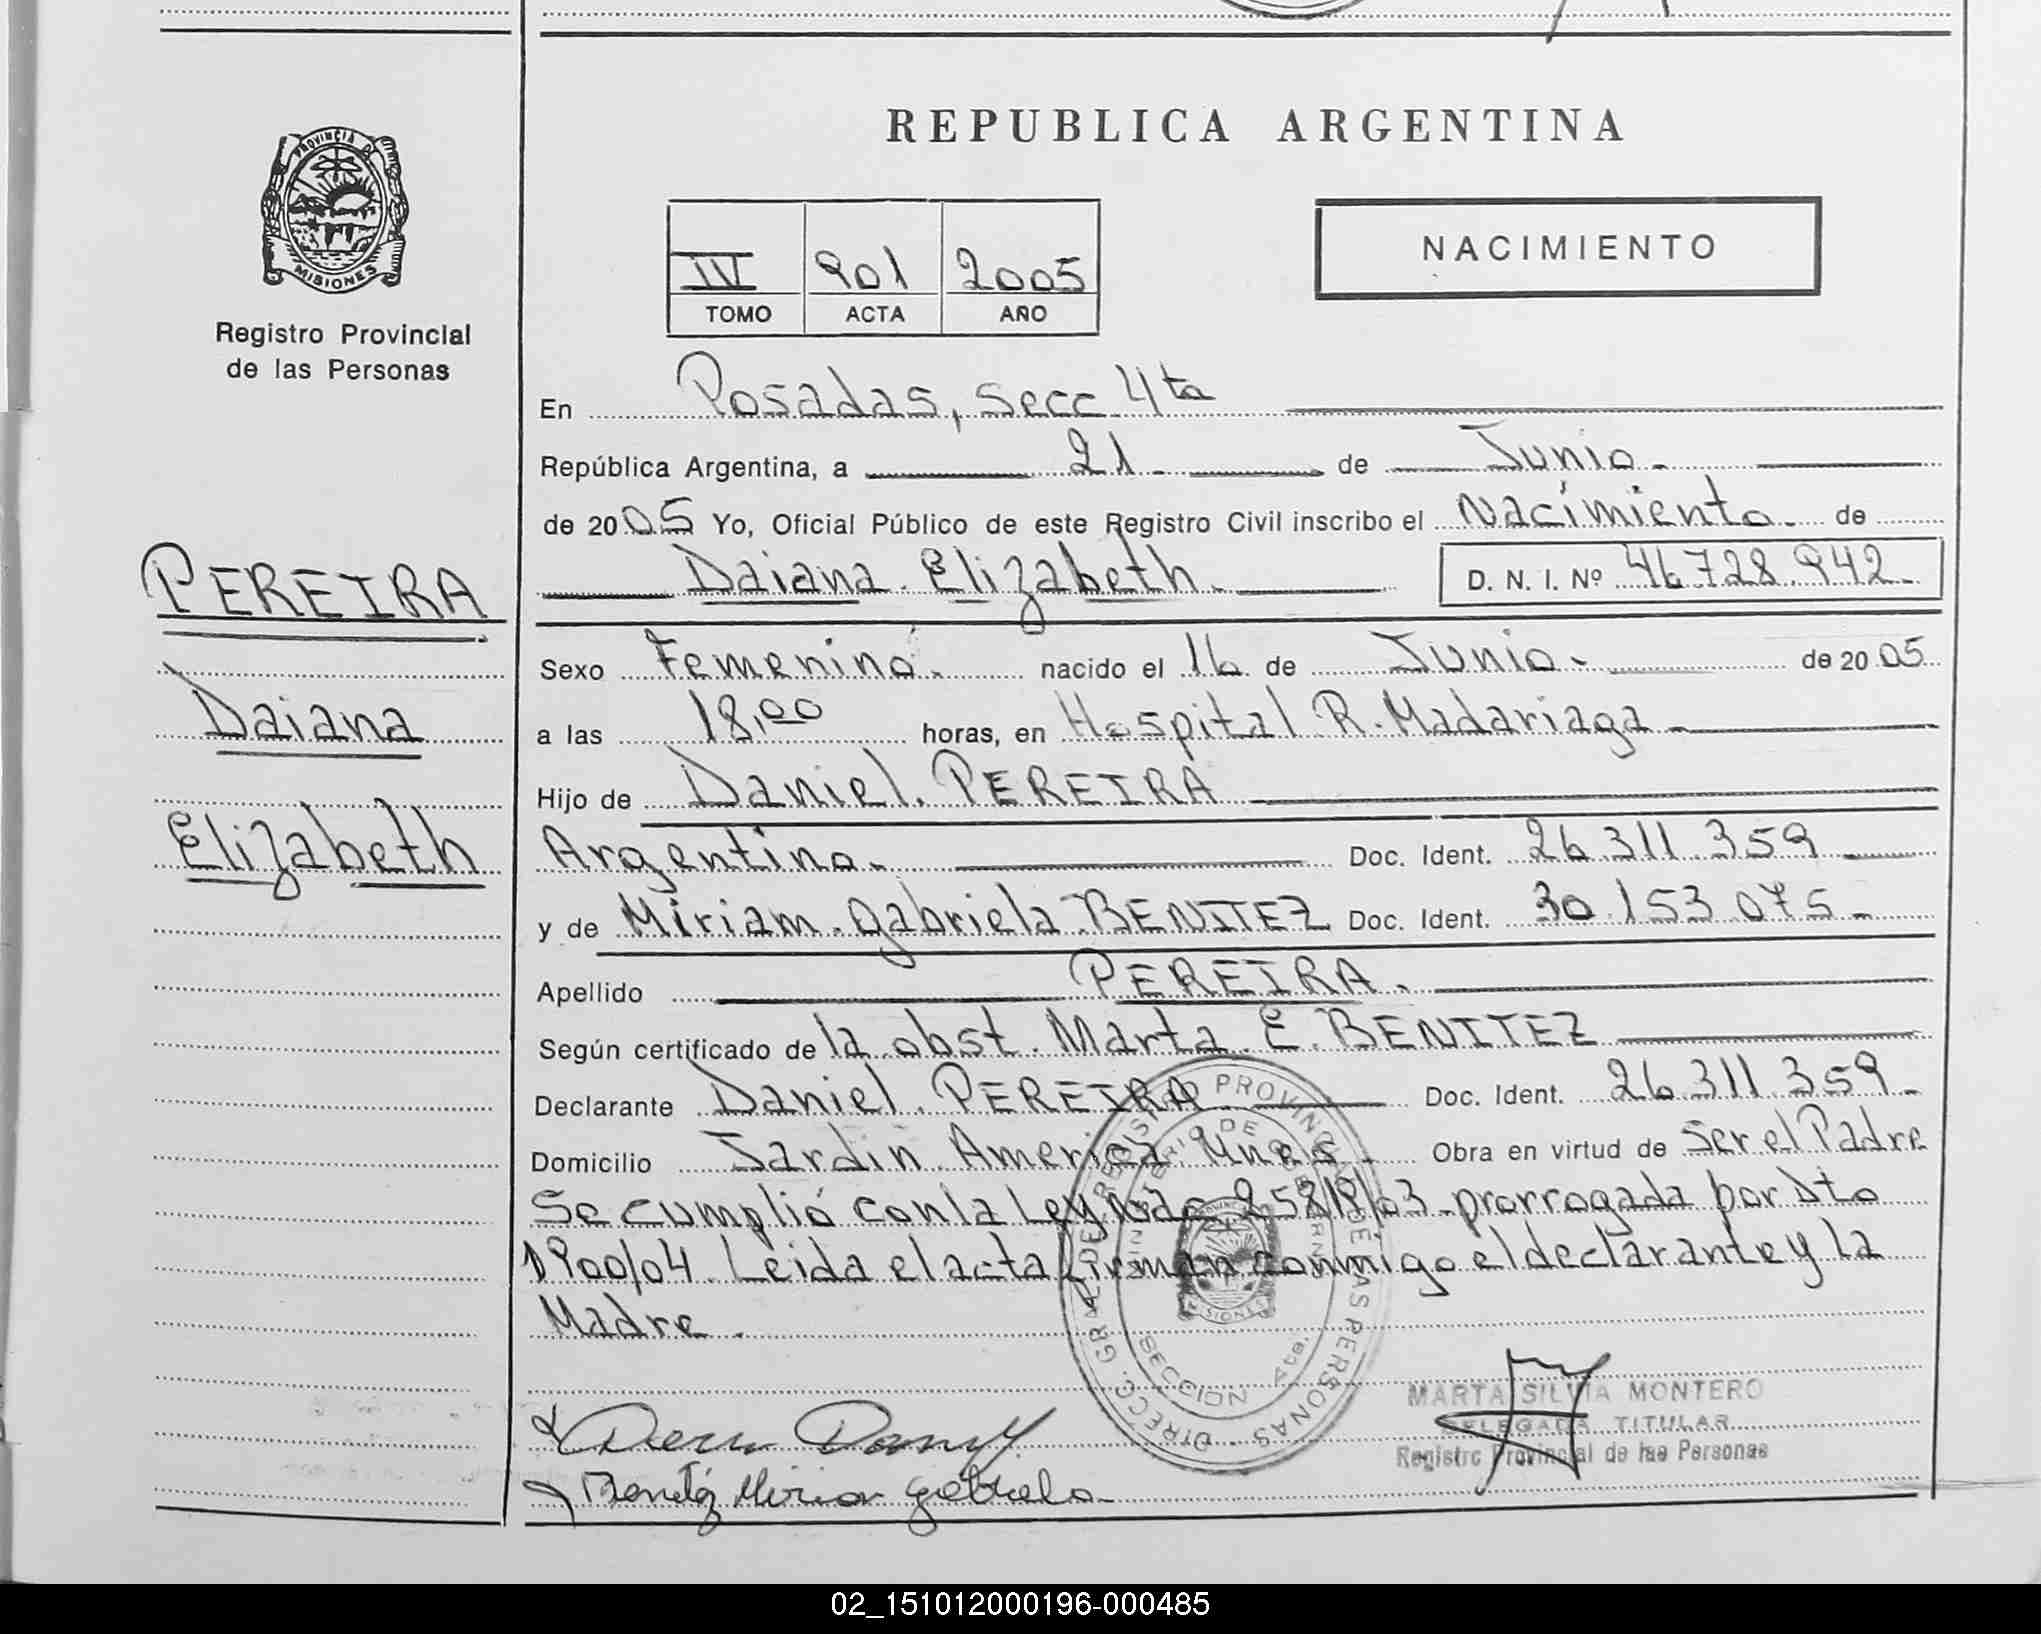 REPUBLICA ARGENTINA
PROVINCIA DE
MISIONES
Registro Provincial
de las Personas
IV 901 2005
TOMO ACTA AÑO
NACIMIENTO
En Posadas, Secc 4ta
República Argentina, a 21 de Junio.
de 2005 Yo, Oficial Público de este Registro Civil inscribo el Nacimiento de
Daiana Elizabeth. D. N. I. Nº 46.728.942.
PEREIRA
Daiana
Elizabeth
Sexo Femenino. nacido el 16 de Junio. de 2005
a las 18,00 horas, en Hospital R. Madariaga
Hijo de Daniel PEREIRA
Argentino. Doc. Ident. 26.311.359
y de Miriam Gabriela BENITEZ Doc. Ident. 30.153.075.
Apellido PEREIRA.
Según certificado de la obst. Marta E. BENITEZ
Declarante Daniel PEREIRA Doc. Ident. 26.311.359.
Domicilio Jardin America Mnes. Obra en virtud de Ser el Padre
Se cumplió con la Ley 25819/03 prorrogada por Dto
1900/04. Leida el acta firman conmigo el declarante y la
Madre.
MARTA SILVIA MONTERO
DELEGADA TITULAR
Registro Provincial de las Personas
Benitez Miriam Gabriela
DIRECC. GRAL. DE REGISTRO PROVINCIAL DE LAS PERSONAS
MINISTERIO DE GOBIERNO
SECCION 4ta.
MISIONES
02_151012000196-000485